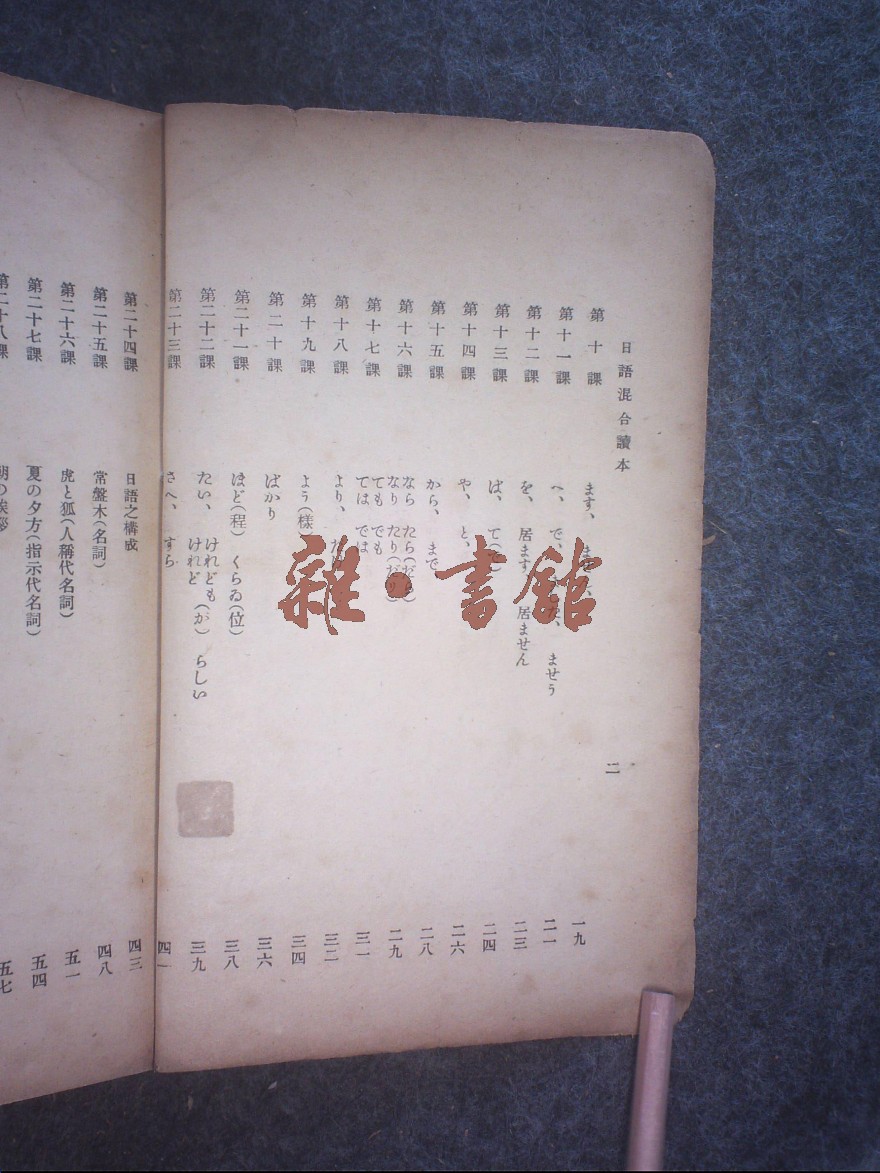 日語混合讀本
二
第十課 ます、
一九
第十一課 へ、で、 ませう
二一
第十二課 を、居ます 居ません
二三
第十三課 は、て
二四
第十四課 や、と、
二六
第十五課 から、まで
二八
第十六課 なら たら
なり たり
二九
第十七課 ても でも
ては では
三一
第十八課 より、
三二
第十九課 よう(樣
三四
第二十課 ばかり
三六
第二十一課 ほど(程) くらゐ(位)
三八
第二十二課 たい、けれども(が) らしい
けれど
三九
第二十三課 さへ、すら
四一
第二十四課 日語之構成
四三
第二十五課 常盤木(名詞)
四八
第二十六課 虎と狐(人稱代名詞)
五一
第二十七課 夏の夕方(指示代名詞)
五四
第二十八課 朝の挨拶
五七
雜·書館